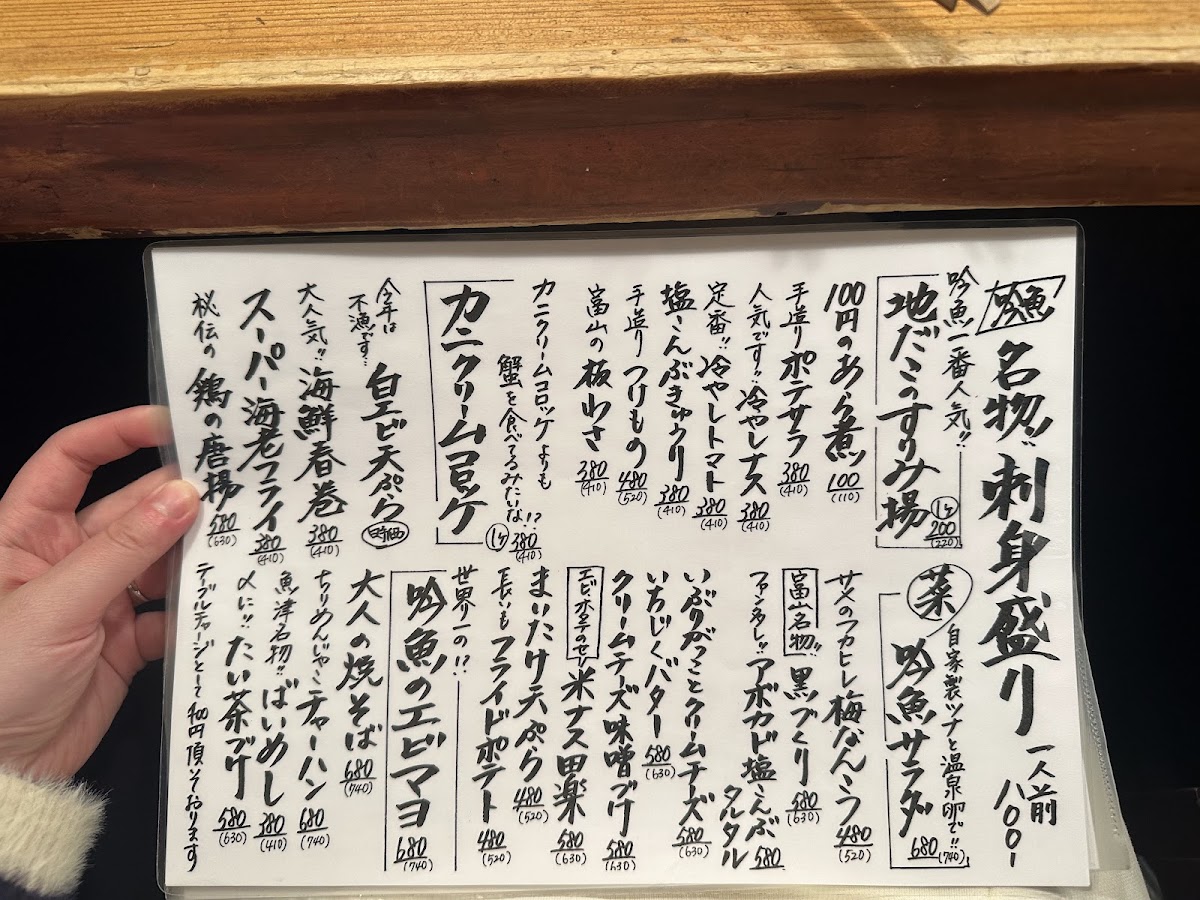 吟魚 名物!! 刺身盛り 一人前 800-
吟魚一番人気!!
地だこのすり み揚 1ヶ 200 (220)
100円のあら煮 100 (110)
手造り ポテサラ 380 (410)
人気です!! 冷やしナス 380 (410)
定番!! 冷やしトマト 380 (410)
塩こんぶきゅうり 380 (410)
手造り つけもの 480 (520)
富山の 板わさ 380 (410)
カニクリームコロッケよりも
蟹を食べてるみたいな!?
カニクリームコロッケ 1ヶ 380 (410)
今年は不漁です… 白エビ天ぷら 時価
大人気!! 海鮮春巻 380 (410)
スーパー海老フライ 380 (410)
秘伝の 鶏の唐揚 580 (630)
菜 自家製ツナと温泉卵で!!
吟魚サラダ 680 (740)
サメのフカヒレ 梅なんこつ 480 (520)
富山名物!! 黒づくり 580 (630)
アボカド塩こんぶタルタル 580
いぶりがっことクリームチーズ 580 (630)
いちじくバター 580 (630)
クリームチーズ味噌づけ 580 (630)
エビ・ホタテのせ!! 米ナス田楽 580 (630)
まいたけ天ぷら 480 (520)
長いも フライドポテト 480 (520)
世界一の!?
吟魚のエビマヨ 680 (740)
大人の焼そば 680 (740)
ちりめんじゃこチャーハン 680 (740)
魚津名物!! ばいめし 380 (410)
〆に!! たい茶づけ 580 (630)
テーブルチャージとして400円頂いております